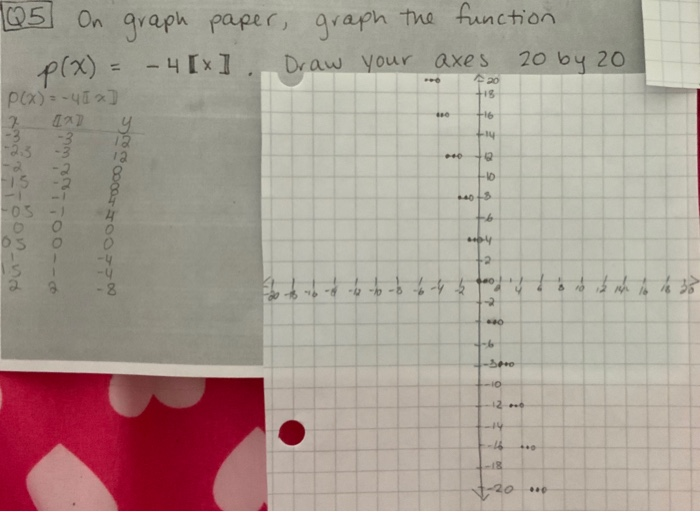 Q5 On graph paper, graph the function
p(x) = -4⟦x⟧. Draw your axes 20 by 20
P(x) = -4⟦x⟧
x ⟦x⟧ y
-3 -3 12
-2.5 -3 12
-2 -2 8
-1.5 -2 8
-1 -1 4
-0.5 -1 4
0 0 0
0.5 0 0
1 1 -4
1.5 1 -4
2 2 -8
20
18
16
14
12
10
8
6
4
2
-20 -18 -16 -14 -12 -10 -8 -6 -4 -2 2 4 6 8 10 12 14 16 18 20
-2
-6
-8
-10
-12
-14
-16
-18
-20